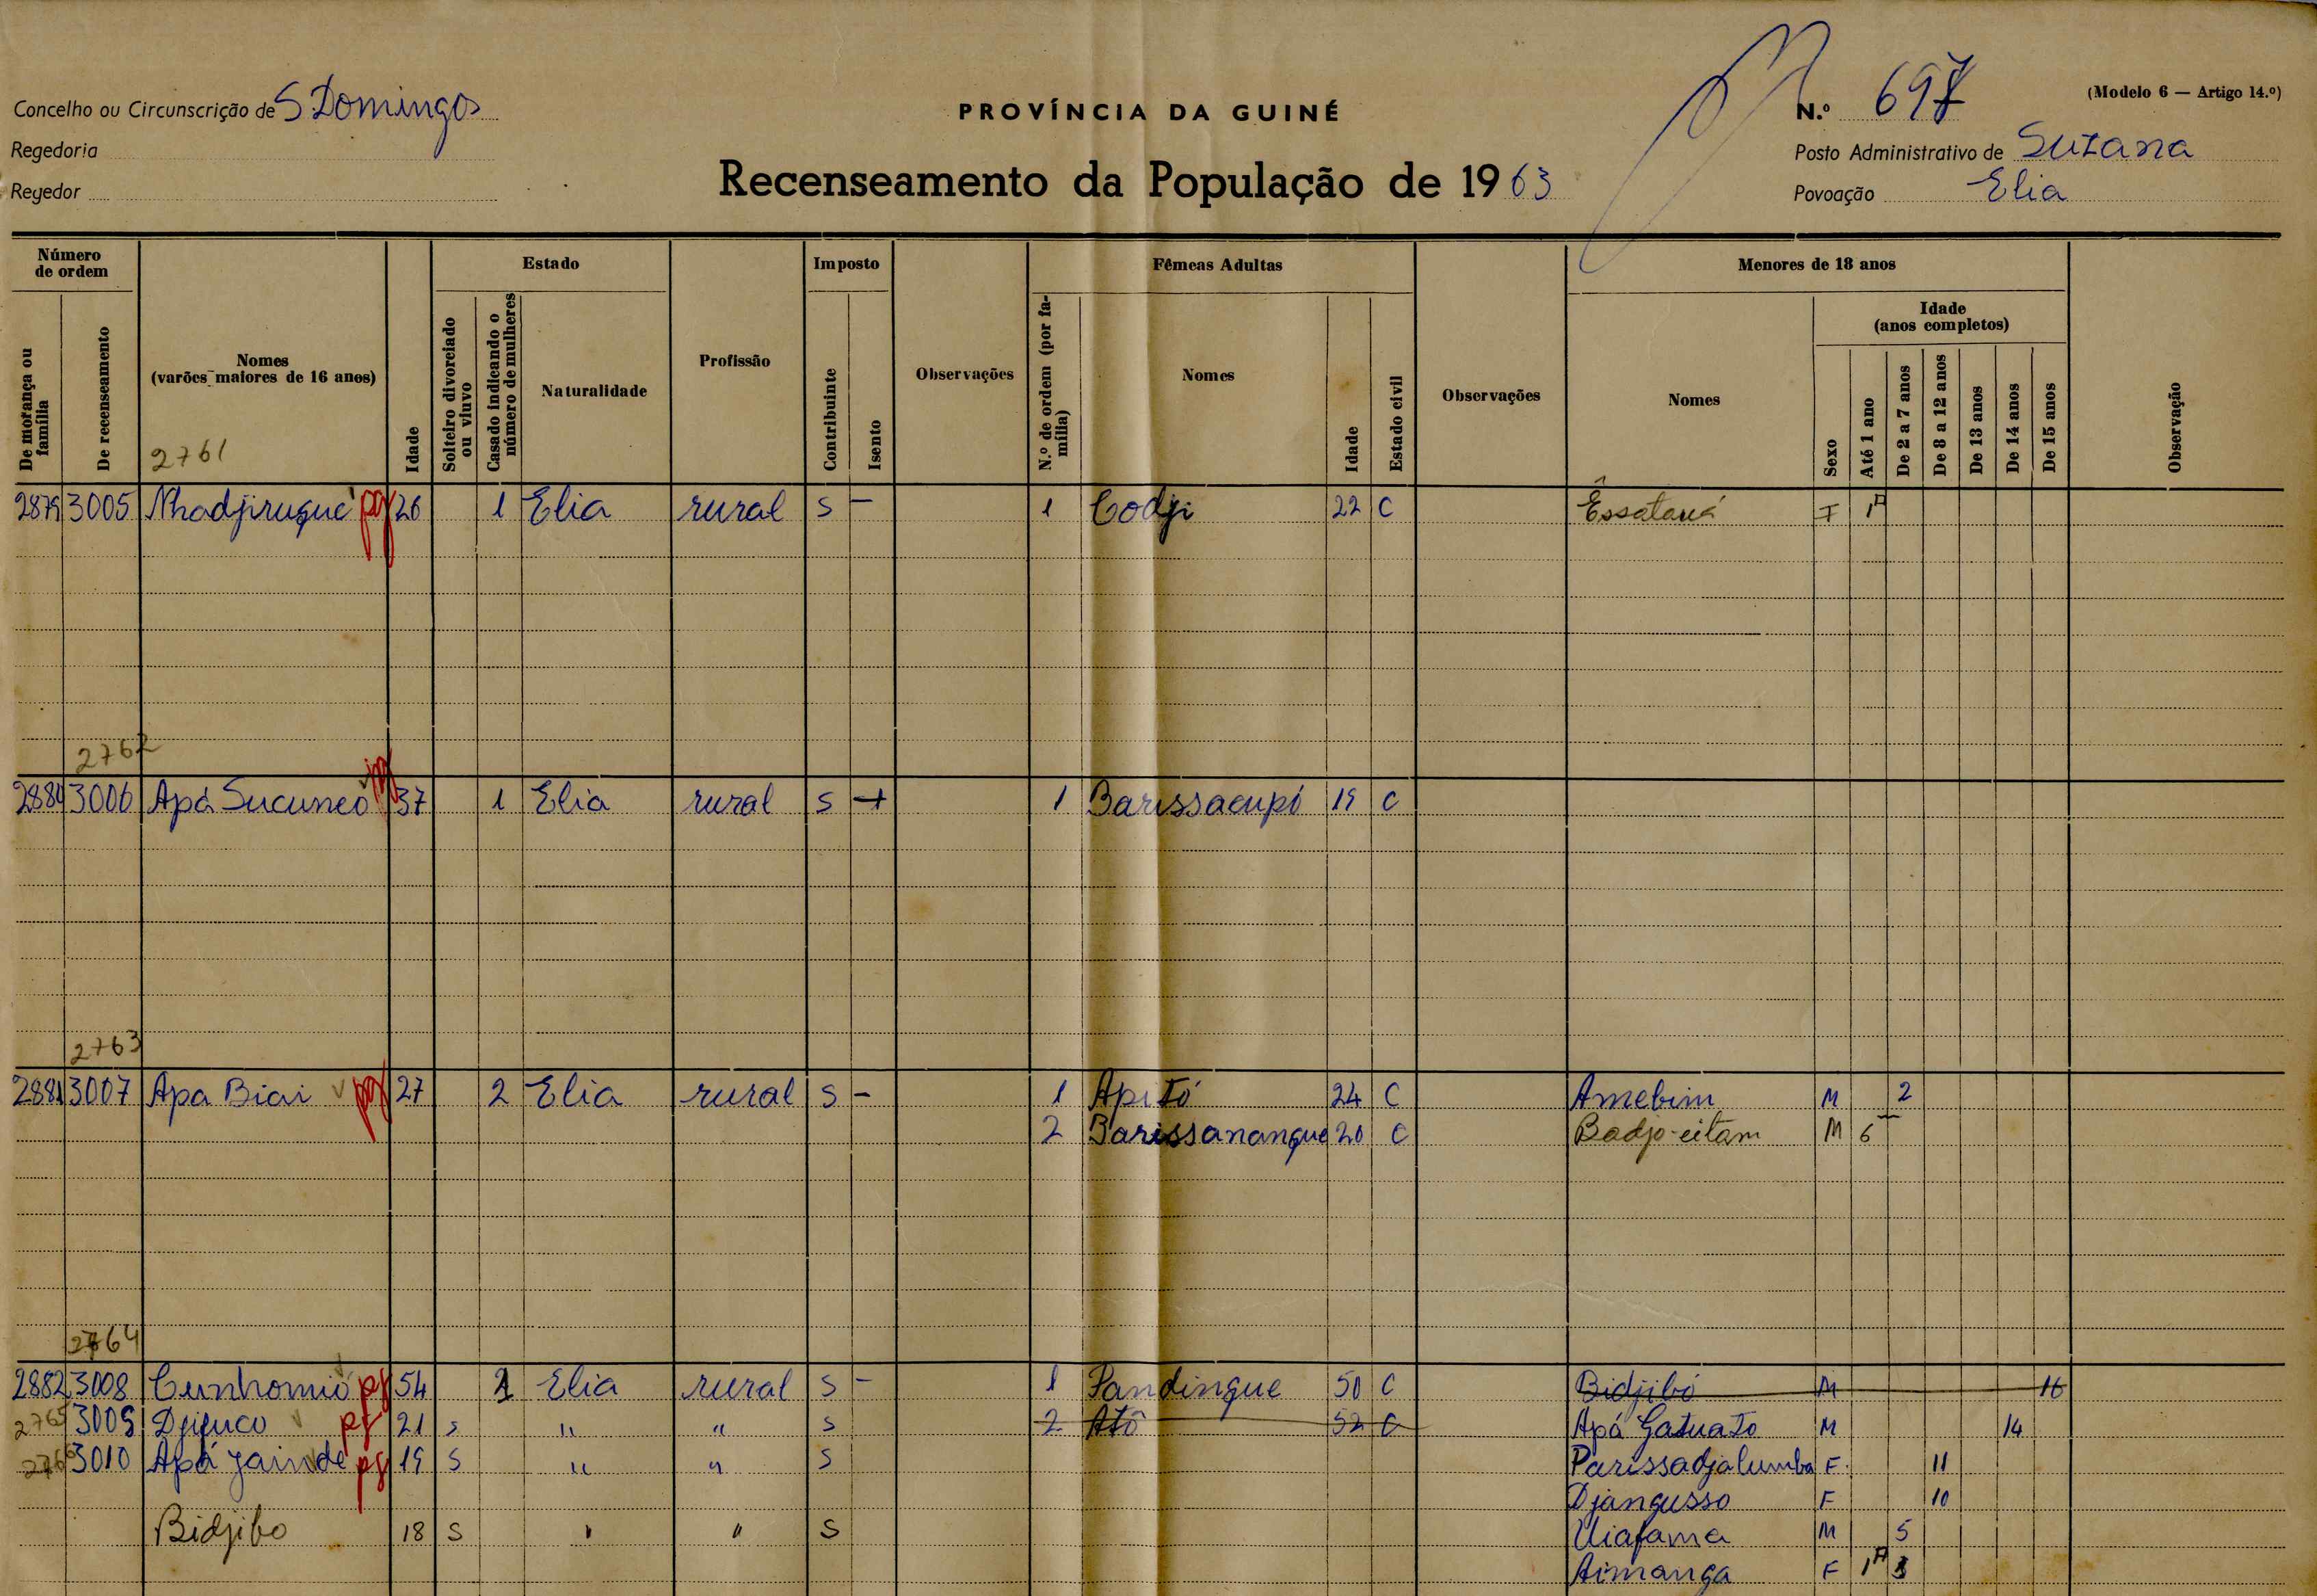 Concelho ou Circunscrição de S. Domingos
Regedoria
Regedor
PROVÍNCIA DA GUINÉ
Recenseamento da População de 1963
N.º 697
(Modelo 6 — Artigo 14.º)
Posto Administrativo de Suzana
Povoação Elia
Número de ordem
Estado
Imposto
Fêmeas Adultas
Menores de 18 anos
Idade (anos completos)
De morança ou família
De recenseamento
Nomes (varões maiores de 16 anos)
Idade
Solteiro divorciado ou viuvo
Casado indicando o número de mulheres
Naturalidade
Profissão
Contribuinte
Isento
Observações
N.º de ordem (por família)
Nomes
Idade
Estado civil
Observações
Nomes
Sexo
Até 1 ano
De 2 a 7 anos
De 8 a 12 anos
De 13 anos
De 14 anos
De 15 anos
Observação
2761
2879 3005 Nhadjirugué pg 26 1 Elia rural S - 1 Codji 22 C F 1A
2762
2880 3006 Apá Sucuneó pg 37 1 Elia rural S + 1 Barissaeupó 19 C
2763
2881 3007 Apa Biai pg 27 2 Elia rural S - 1 Apitó 24 C Amebim M 2
2 Barissanangue 20 C Badjo-eitam M 6
2764
2882 3008 Cunhomió pg 54 Elia rural S - 1 Pandingue 50 C Bidjibó M 16
2765 3009 Djifuco pg 21 S " " S 2 Atô 52 C Apá Gatuato M 14
2766 3010 Apá Jaindé pg 19 S " " S Parissadjalumba F 11
Djangusso F 10
Bidjibo 18 S " " S Uiafama M 5
Aimanga F 1A